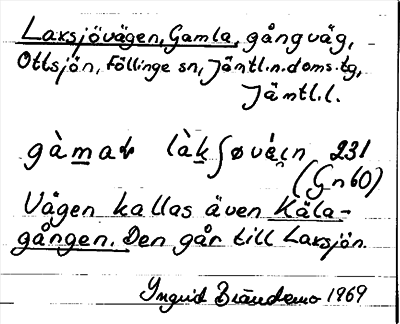 Laxsjövägen, Gamla, gångväg,
Ottsjön, Föllinge sn, Jämtl.n.doms.tg,
Jämtl.l.
gàmaɫ làkʃøvę́ɩn 231
(Gn 60)
Vägen kallas även Käla-
gången. Den går till Laxsjön.
Ingrid 1969